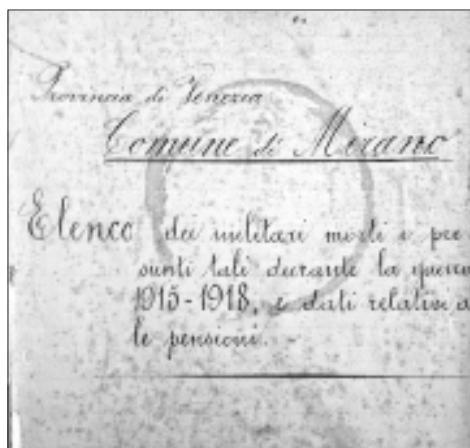 Provincia di Venezia
Comune di Mirano
Elenco dei militari morti e pre
sunti tali durante la guerra
1915-1918, e dati relativi a
le pensioni. -